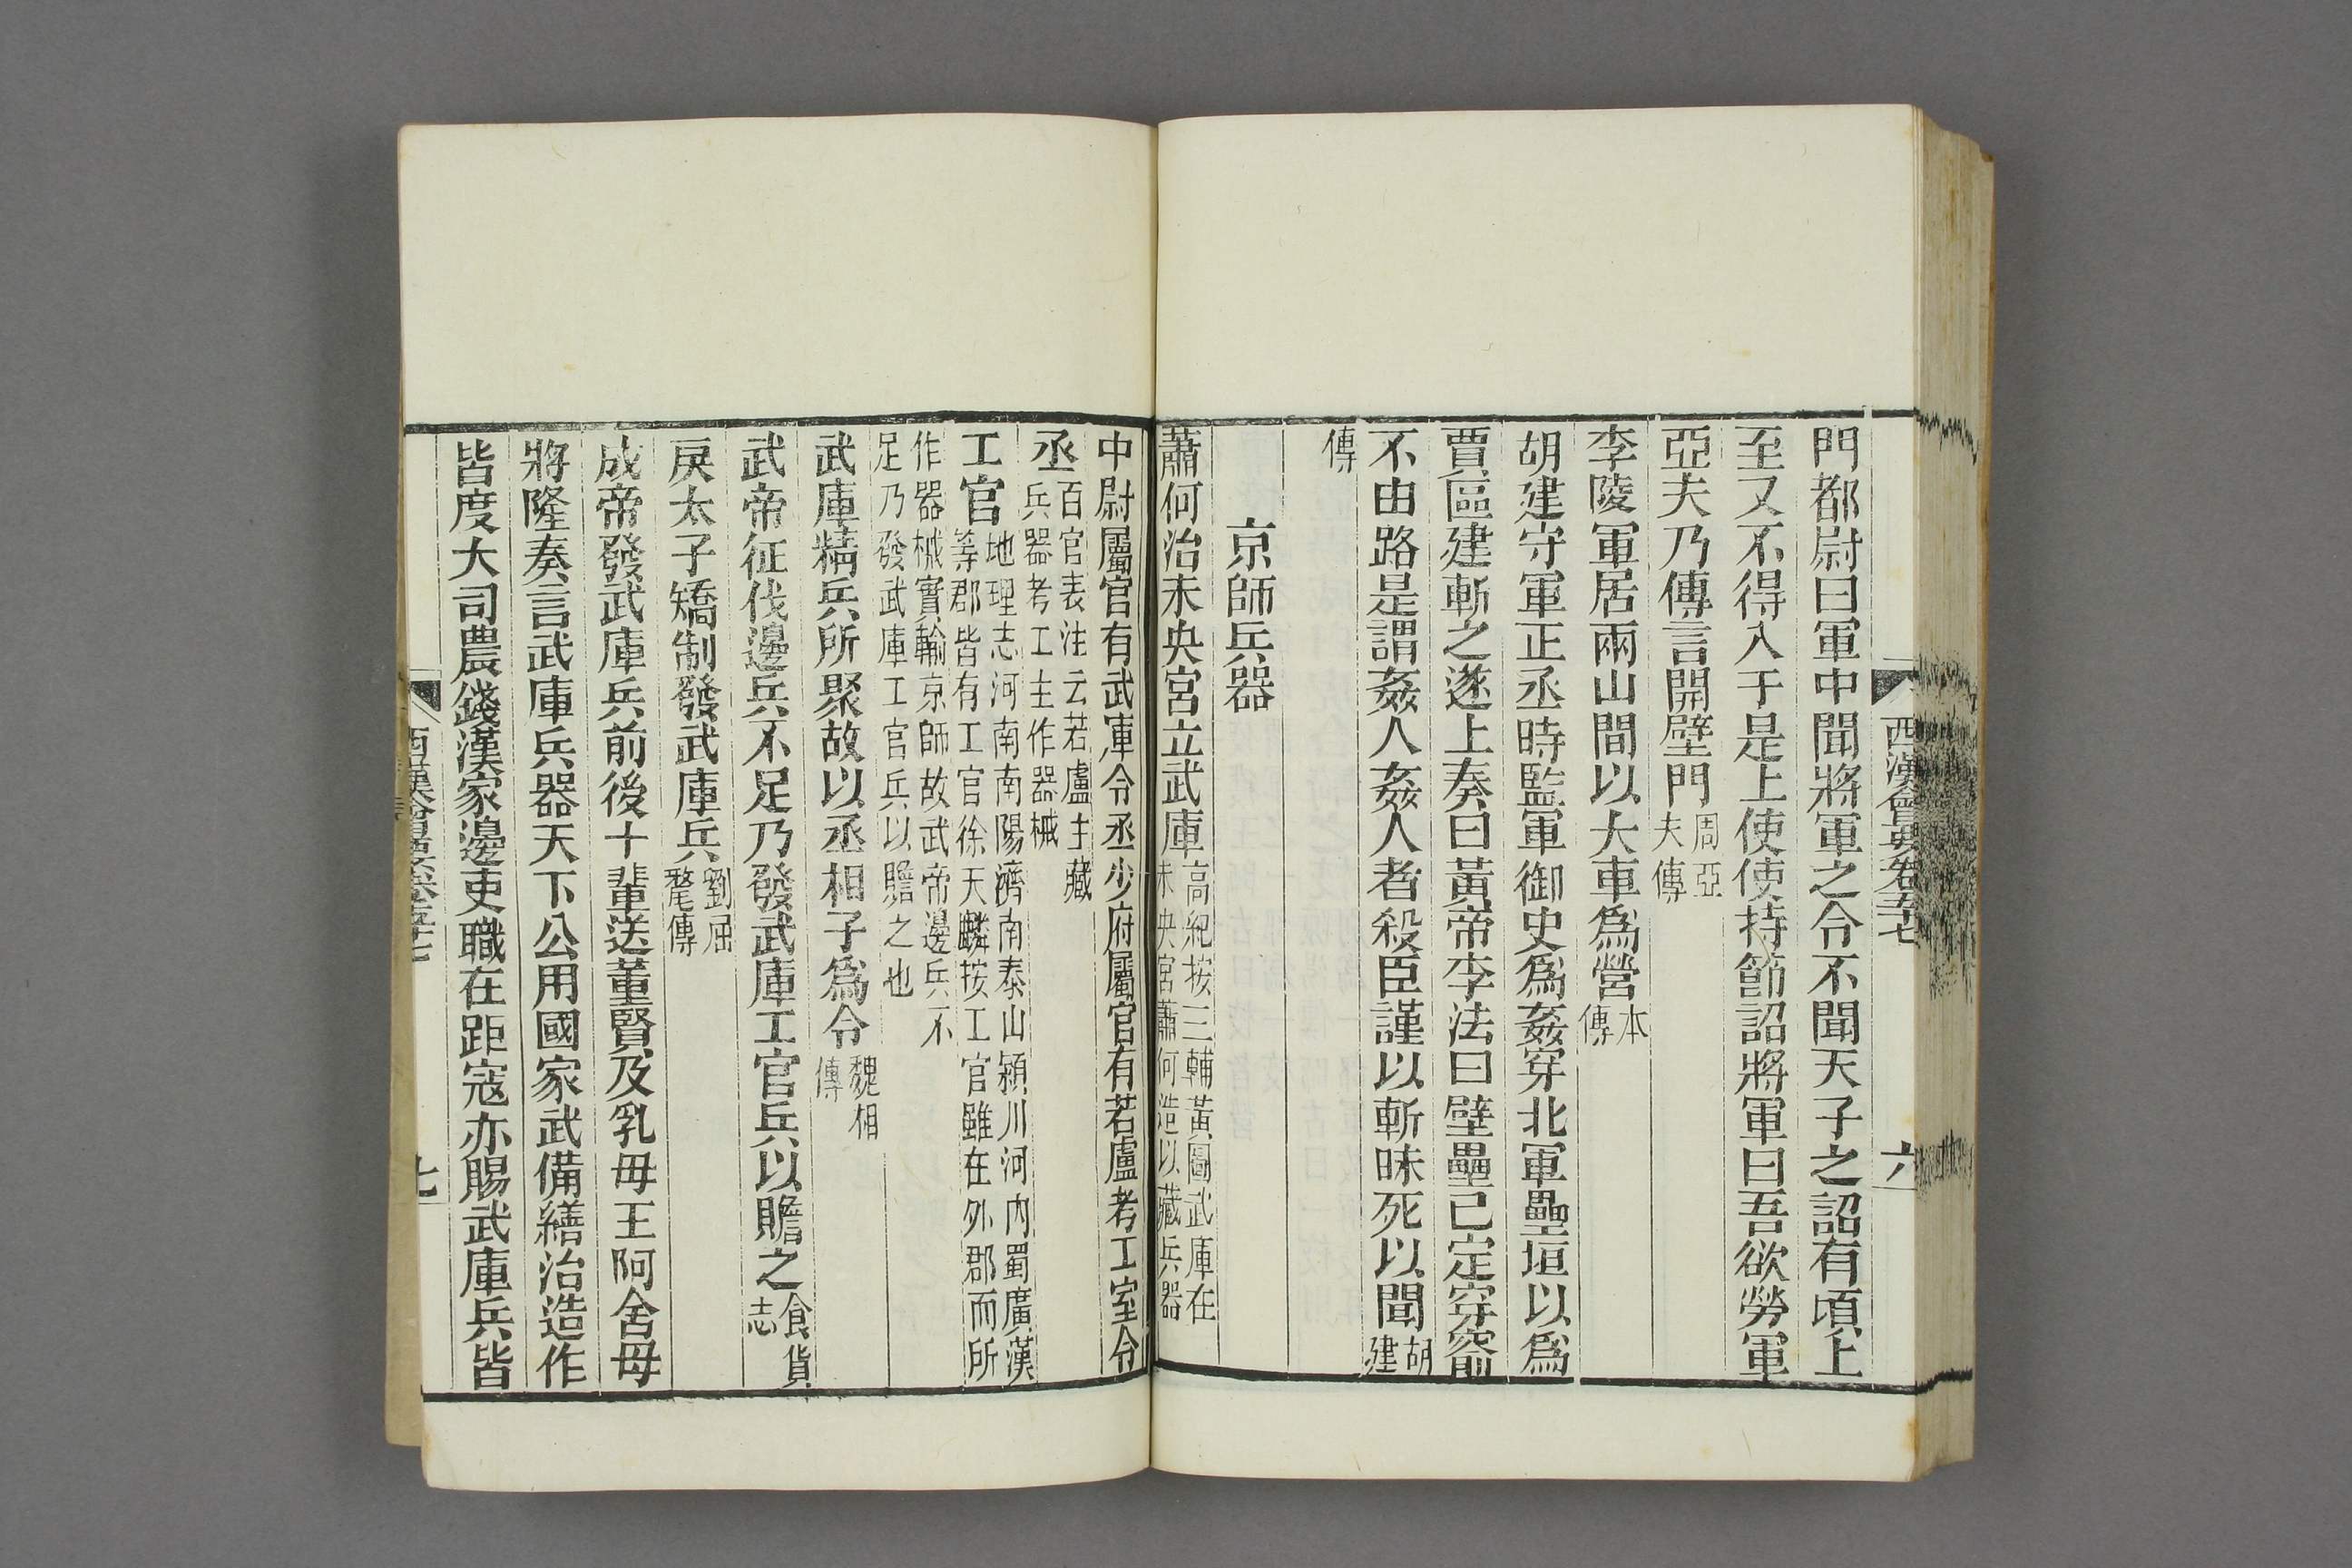 西漢會要卷五十七
六
門都尉曰軍中聞將軍之令不聞天子之詔有頃上
至又不得入于是上使使持節詔將軍曰吾欲勞軍
亞夫乃傳言開壁門周亞夫傳
李陵軍居兩山間以大車爲營本傳
胡建守軍正丞時監軍御史爲姦穿北軍壘垣以爲
賈區建斬之遂上奏曰黃帝李法曰壁壘已定穿窬
不由路是謂姦人姦人者殺臣謹以斬昧死以聞胡建
傳
京師兵器
蕭何治未央宮立武庫高紀按三輔黃圖武庫在未央宮蕭何造以藏兵器
中尉屬官有武庫令丞少府屬官有若盧考工室令
丞百官表注云若盧主藏兵器考工主作器械
工官地理志河南南陽濟南泰山潁川河內蜀廣漢等郡皆有工官徐天麟按工官雖在外郡而所
作器械實輸京師故武帝邊兵不足乃發武庫工官兵以贍之也
武庫精兵所聚故以丞相子爲令魏相傳
武帝征伐邊兵不足乃發武庫工官兵以贍之食貨志
戾太子矯制發武庫兵劉屈氂傳
成帝發武庫兵前後十輩送董賢及乳母王阿舍毋
將隆奏言武庫兵器天下公用國家武備繕治造作
皆度大司農錢漢家邊吏職在距寇亦賜武庫兵皆
西漢會要卷五十七
七